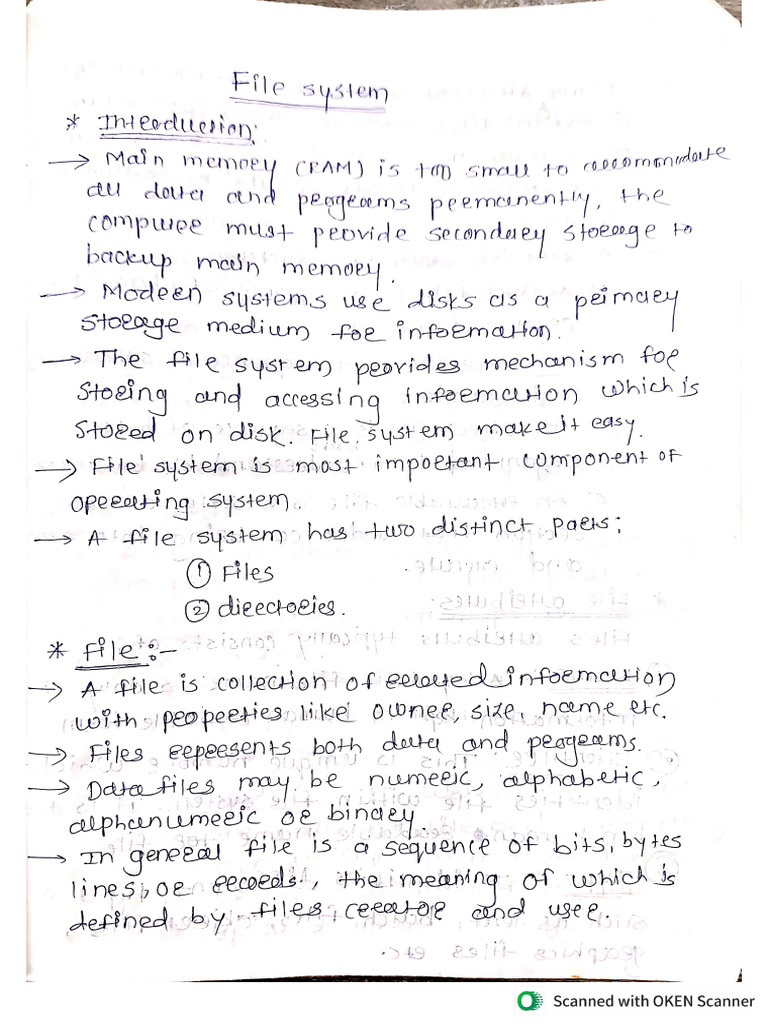 File system
* Introduction:
→ Main memory (RAM) is too small to accommodate
all data and programs permanently, the
computer must provide secondary storage to
backup main memory.
→ Modern systems use disks as a primary
storage medium for information.
→ The file system provides mechanism for
storing and accessing information which is
stored on disk. File system make it easy.
→ File system is most important component of
operating system.
→ A file system has two distinct parts:
① Files
② directories.
* File:-
→ A file is collection of related information
with properties like owner, size, name etc.
→ Files represents both data and programs.
→ Data files may be numeric, alphabetic,
alphanumeric or binary.
→ In general file is a sequence of bits, bytes
lines, or records, the meaning of which is
defined by files creator and user.
Scanned with OKEN Scanner